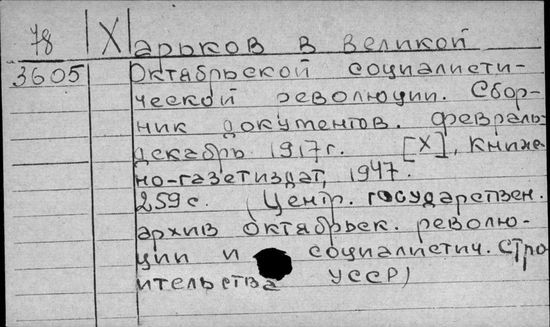 78 Харьков в Великой
3605 Октябрьской социалисти-
ческой революции. Сбор-
ник документов. Февраль-
декабрь 1917г. [Х], книже-
но-газетиздат, 1947.
259с. (Центр. государствен.
архив Октябрьск. револю-
ции и социалистич. стро
ительства УССР)